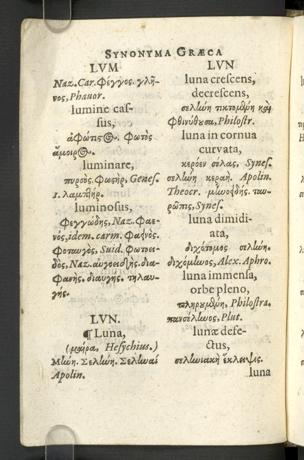 SYNONYMA GRÆCA
LVM
Naz. Car. Φέγγος. γλῆ-
νος, Phavor.
lumine cas-
sus,
ἀφώτις. Φωτὸς
ἄμοιρος.
luminare,
πυρσὸς. Φωςὴρ, Genes.
1. λαμπτὴρ.
luminosus,
Φεγγώδης, Naz. Φαε-
νὸς, idem. carm. Φαηνὸς.
Φωταυγὸς, Suid. Φωτοει-
δὸς, Naz. αὐγοειδὴς. δια-
Φανὴς. διαυγὴς. τηλαυ-
γὴς.
LVN.
¶ Luna,
(μαῖρα, Hesychius.)
Μώνη. Σελώνη. Σελωναί
Apolin.
LVN
luna crescens,
decrescens,
σελώνη τικτομένη καὶ
Φθινύθουσα, Philostr.
luna in cornua
curvata,
κερόεν σέλας, Synes.
σελώνη κεραὴ. Apolin.
Theocr. μωνοειδὴς. ταυ-
ρῶπις, Synes.
luna dimidi-
ata,
διχότομος σελώνη.
διχόμωνος, Alex. Aphro.
luna immensa,
orbe pleno,
πληρυμένη, Philostra.
πανσέλωνος, Plut.
lunæ defe-
ctus,
σελωνιακὴ ἔκλειψις.
luna